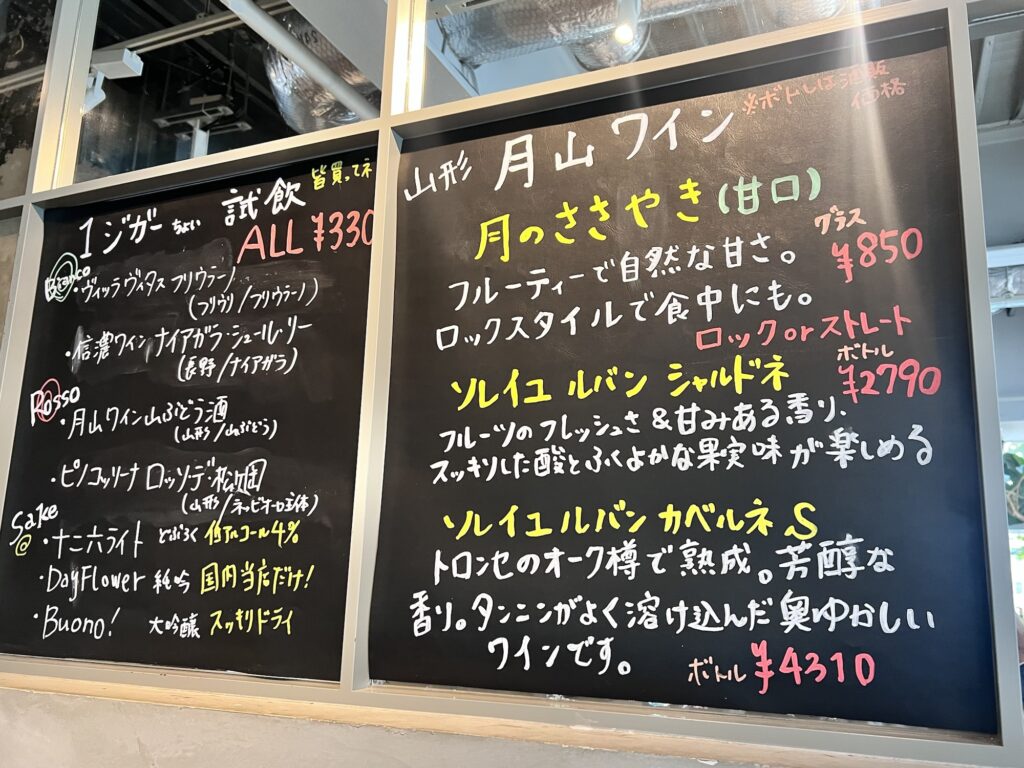 1ジガー ちょい 試飲 皆買ってネ
ALL ¥330
Bianco
・ヴィッラ ヴィタス フリウラーノ
(フリウリ/フリウラーノ)
・信濃ワイン ナイアガラ・シュールリー
(長野/ナイアガラ)
Rosso
・月山ワイン山ぶどう酒
(山形/山ぶどう)
・ピノコッリーナ ロッソ・デ・松ヶ岡
(山形/ネッビオーロ主体)
Sake
・十二六ライト どぶろく 低アルコール4%
・DayFlower 純吟 国内当店だけ!
・Buono! 大吟醸 スッキリドライ
山形 月山ワイン ※ボトルは酒販
価格
月のささやき(甘口)
グラス
¥850
フルーティーで自然な甘さ。
ロックスタイルで食中にも。
ロック or ストレート
ソレイユ ルバン シャルドネ ボトル
¥2790
フルーツのフレッシュさ&甘みある香り、
スッキリした酸とふくよかな果実味が楽しめる
ソレイユ ルバン カベルネ S
トロンセのオーク樽で熟成。芳醇な
香り。タンニンがよく溶け込んだ奥ゆかしい
ワインです。 ボトル ¥4310